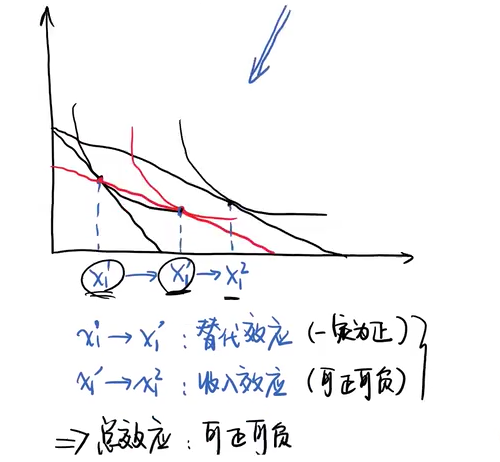 x₁¹ → x₁' → x₁²
x₁¹ → x₁' : 替代效应 (一定为正)
x₁' → x₁² : 收入效应 (可正可负)
⇒ 总效应 : 可正可负